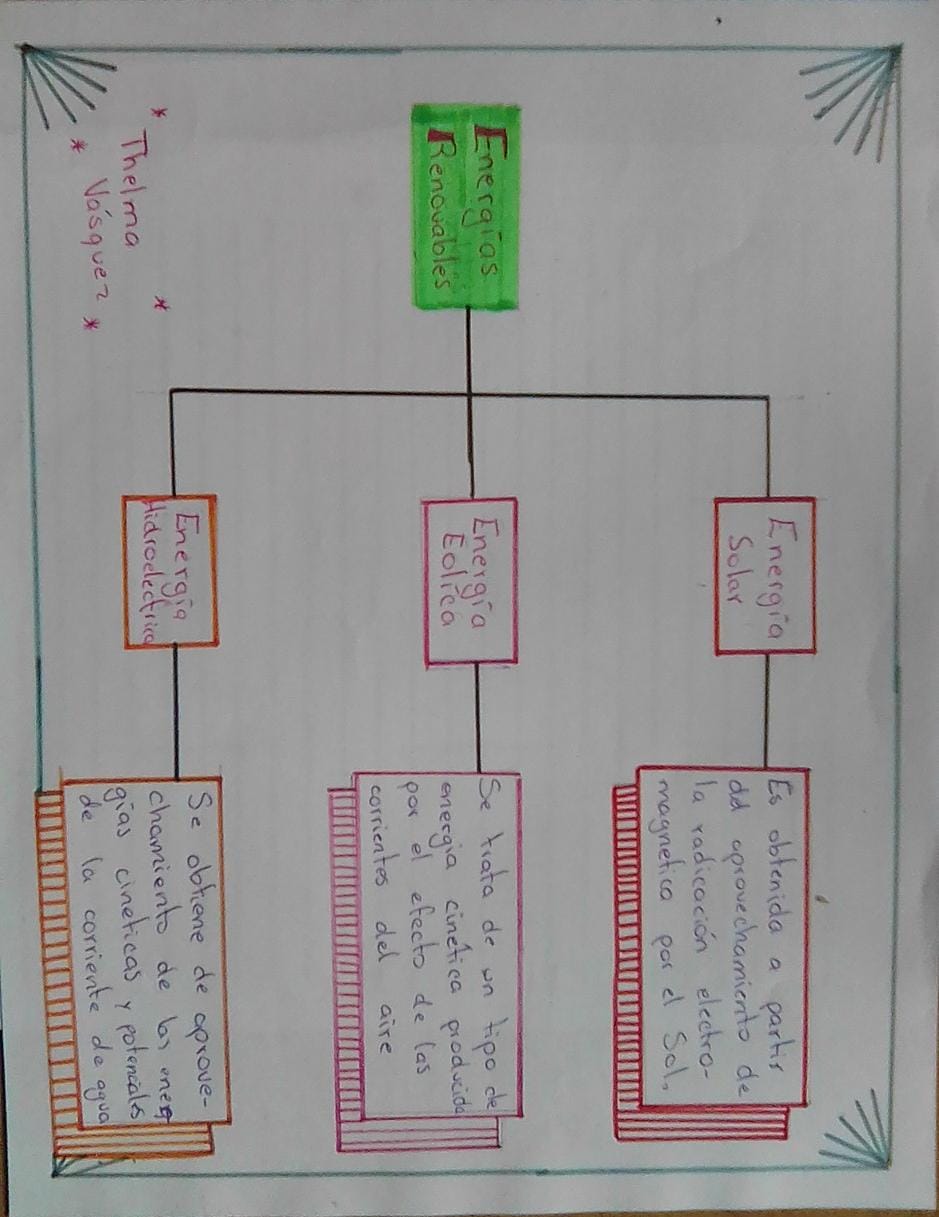 Energías
Renovables
Energía
Solar
Es obtenida a partir
del aprovechamiento de
la radicación electro-
magnetica por el Sol.
Energía
Eolíca
Se trata de un tipo de
energia cinética producida
por el efecto de las
corrientes del aire
Energía
Hidroelectrica
Se obtiene de aprove-
chamiento de las ener
gías cineticas y potenciales
de la corriente de agua
* Thelma *
* Vásquez *